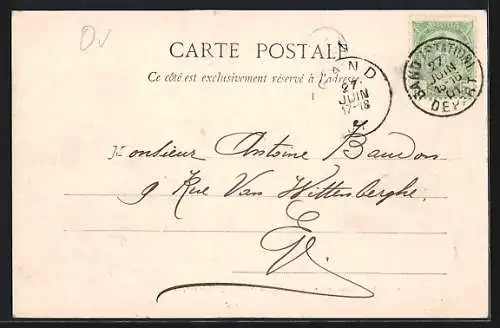 OV
CARTE POSTALE
Ce côté est exclusivement réservé à l'adresse.
GAND
27
JUIN
17-18
GAND (STATION)
27
JUIN
15-16
01
DEPART
Monsieur Antoine Baudon
9 Rue Van Wittenberghe.
E. V.